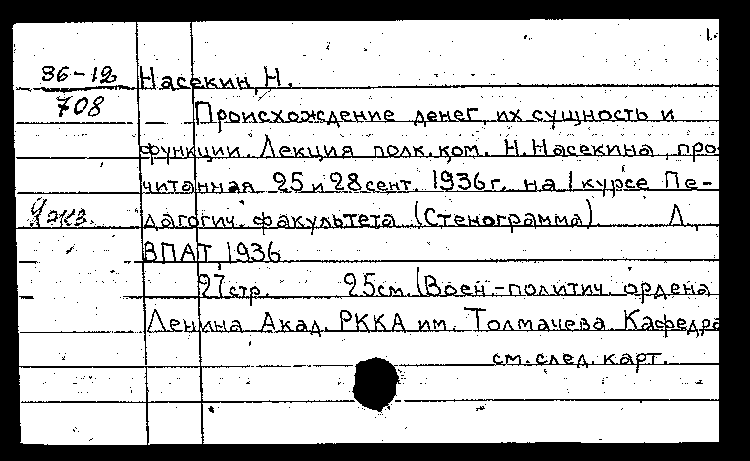 1.
36-12 Насекин, Н.
708 Происхождение денег, их сущность и
функции. Лекция полк. ком. Н. Насекина, про-
читанная 25 и 28 сент. 1936 г. на I курсе Пе-
2 экз. дагогич. факультета (Стенограмма) Л.,
ВПАТ, 1936
27 стр. 25 см. (Воен.-политич. ордена
Ленина Акад. РККА им. Толмачева. Кафедра
см. след. карт.